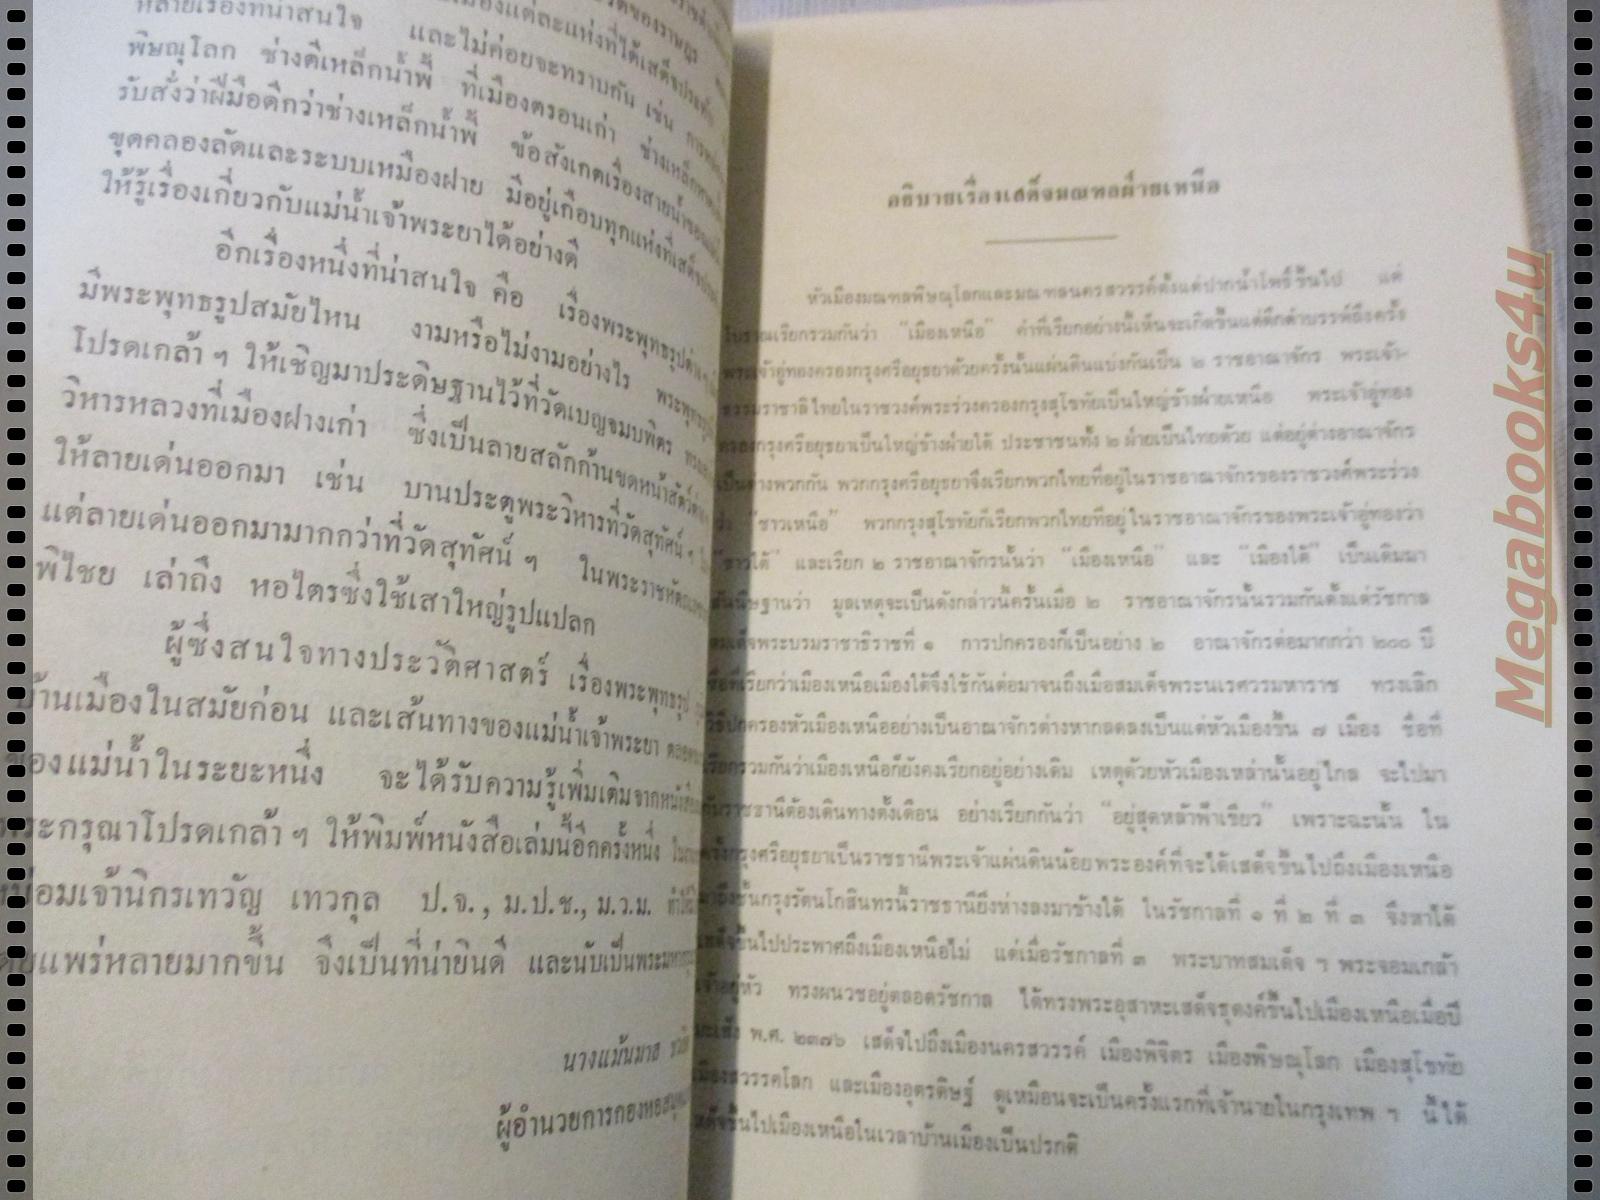 หลายเรื่องที่น่าสนใจ และไม่ค่อยจะทราบกัน เช่น
พิษณุโลก ช่างตีเหล็กน้ำพี้ ที่เมืองตรอนเก่า ช่างเหล็ก
รับสั่งว่าฝีมือดีกว่าช่างเหล็กน้ำพี้ ข้อสังเกตเรื่องสายน้ำของ
ขุดคลองลัดและระบบเหมืองฝาย มีอยู่เกือบทุกแห่งที่เสด็จ
ให้รู้เรื่องเกี่ยวกับแม่น้ำเจ้าพระยาได้อย่างดี
อีกเรื่องหนึ่งที่น่าสนใจ คือ เรื่องพระพุทธรูปต่าง ๆ
มีพระพุทธรูปสมัยไหน งามหรือไม่งามอย่างไร พระพุทธรูป
โปรดเกล้า ฯ ให้เชิญมาประดิษฐานไว้ที่วัดเบญจมบพิตร
วิหารหลวงที่เมืองฝางเก่า ซึ่งเป็นลายสลักก้านขดหน้าสัตว์ต่าง ๆ
ให้ลายเด่นออกมา เช่น บานประตูพระวิหารที่วัดสุทัศน์ ฯ
แต่ลายเด่นออกมามากกว่าที่วัดสุทัศน์ ฯ ในพระราชหัตถเลขา
พิไชย เล่าถึง หอไตรซึ่งใช้เสาใหญ่รูปแปลก
ผู้ซึ่งสนใจทางประวัติศาสตร์ เรื่องพระพุทธรูป
บ้านเมืองในสมัยก่อน และเส้นทางของแม่น้ำเจ้าพระยา ตลอดจน
ของแม่น้ำในระยะหนึ่ง จะได้รับความรู้เพิ่มเติมจากหนังสือ
พระกรุณาโปรดเกล้า ฯ ให้พิมพ์หนังสือเล่มนี้อีกครั้งหนึ่ง
หม่อมเจ้านิกรเทวัญ เทวกุล ป.จ., ม.ป.ช., ม.ว.ม. ทำให้
แพร่หลายมากขึ้น จึงเป็นที่น่ายินดี และนับเป็นพระมหากรุณา
นางแม้นมาส ชวลิต
ผู้อำนวยการกองหอสมุด
อธิบายเรื่องเสด็จมณฑลฝ่ายเหนือ
หัวเมืองมณฑลพิษณุโลกและมณฑลนครสวรรค์ตั้งแต่ปากน้ำโพธิ์ขึ้นไป แต่
โบราณเรียกรวมกันว่า “เมืองเหนือ” คำที่เรียกอย่างนี้เห็นจะเกิดขึ้นแต่ดึกดำบรรพ์ถึงครั้ง
พระเจ้าอู่ทองครองกรุงศรีอยุธยาด้วยครั้งนั้นแผ่นดินแบ่งกันเป็น ๒ ราชอาณาจักร พระเจ้า-
ธรรมราชาลิไทยในราชวงศ์พระร่วงครองกรุงสุโขทัยเป็นใหญ่ข้างฝ่ายเหนือ พระเจ้าอู่ทอง
ครองกรุงศรีอยุธยาเป็นใหญ่ข้างฝ่ายใต้ ประชาชนทั้ง ๒ ฝ่ายเป็นไทยด้วย แต่อยู่ต่างอาณาจักร
เป็นต่างพวกกัน พวกกรุงศรีอยุธยาจึงเรียกพวกไทยที่อยู่ในราชอาณาจักรของราชวงศ์พระร่วง
ว่า “ชาวเหนือ” พวกกรุงสุโขทัยก็เรียกพวกไทยที่อยู่ในราชอาณาจักรของพระเจ้าอู่ทองว่า
“ชาวใต้” และเรียก ๒ ราชอาณาจักรนั้นว่า “เมืองเหนือ” และ “เมืองใต้” เป็นเดิมมา
สันนิษฐานว่า มูลเหตุจะเป็นดังกล่าวนี้ครั้นเมื่อ ๒ ราชอาณาจักรนั้นรวมกันตั้งแต่รัชกาล
สมเด็จพระบรมราชาธิราชที่ ๑ การปกครองก็เป็นอย่าง ๒ อาณาจักรต่อมากกว่า ๒๐๐ ปี
ชื่อที่เรียกว่าเมืองเหนือเมืองใต้จึงใช้กันต่อมาจนถึงเมื่อสมเด็จพระนเรศวรมหาราช ทรงเลิก
วิธีปกครองหัวเมืองเหนืออย่างเป็นอาณาจักรต่างหากลดลงเป็นแต่หัวเมืองขึ้น ๗ เมือง ชื่อที่
เรียกรวมกันว่าเมืองเหนือก็ยังคงเรียกอยู่อย่างเดิม เหตุด้วยหัวเมืองเหล่านั้นอยู่ไกล จะไปมา
กับราชธานีต้องเดินทางตั้งเดือน อย่างเรียกกันว่า “อยู่สุดหล้าฟ้าเขียว” เพราะฉะนั้น ใน
ครั้งกรุงศรีอยุธยาเป็นราชธานีพระเจ้าแผ่นดินน้อยพระองค์ที่จะได้เสด็จขึ้นไปถึงเมืองเหนือ
มาถึงชั้นกรุงรัตนโกสินทรนี้ราชธานียิ่งห่างลงมาข้างใต้ ในรัชกาลที่ ๑ ที่ ๒ ที่ ๓ จึงหาได้
เสด็จขึ้นไปประพาศถึงเมืองเหนือไม่ แต่เมื่อรัชกาลที่ ๓ พระบาทสมเด็จ ฯ พระจอมเกล้า
เจ้าอยู่หัว ทรงผนวชอยู่ตลอดรัชกาล ได้ทรงพระอุสาหะเสด็จธุดงค์ขึ้นไปเมืองเหนือเมื่อปี
มะเส็ง พ.ศ. ๒๓๗๖ เสด็จไปถึงเมืองนครสวรรค์ เมืองพิจิตร เมืองพิษณุโลก เมืองสุโขทัย
เมืองสวรรคโลก และเมืองอุตรดิษฐ์ ดูเหมือนจะเป็นครั้งแรกที่เจ้านายในกรุงเทพ ฯ นี้ได้
เสด็จขึ้นไปเมืองเหนือในเวลาบ้านเมืองเป็นปรกติ
Megabooks4u